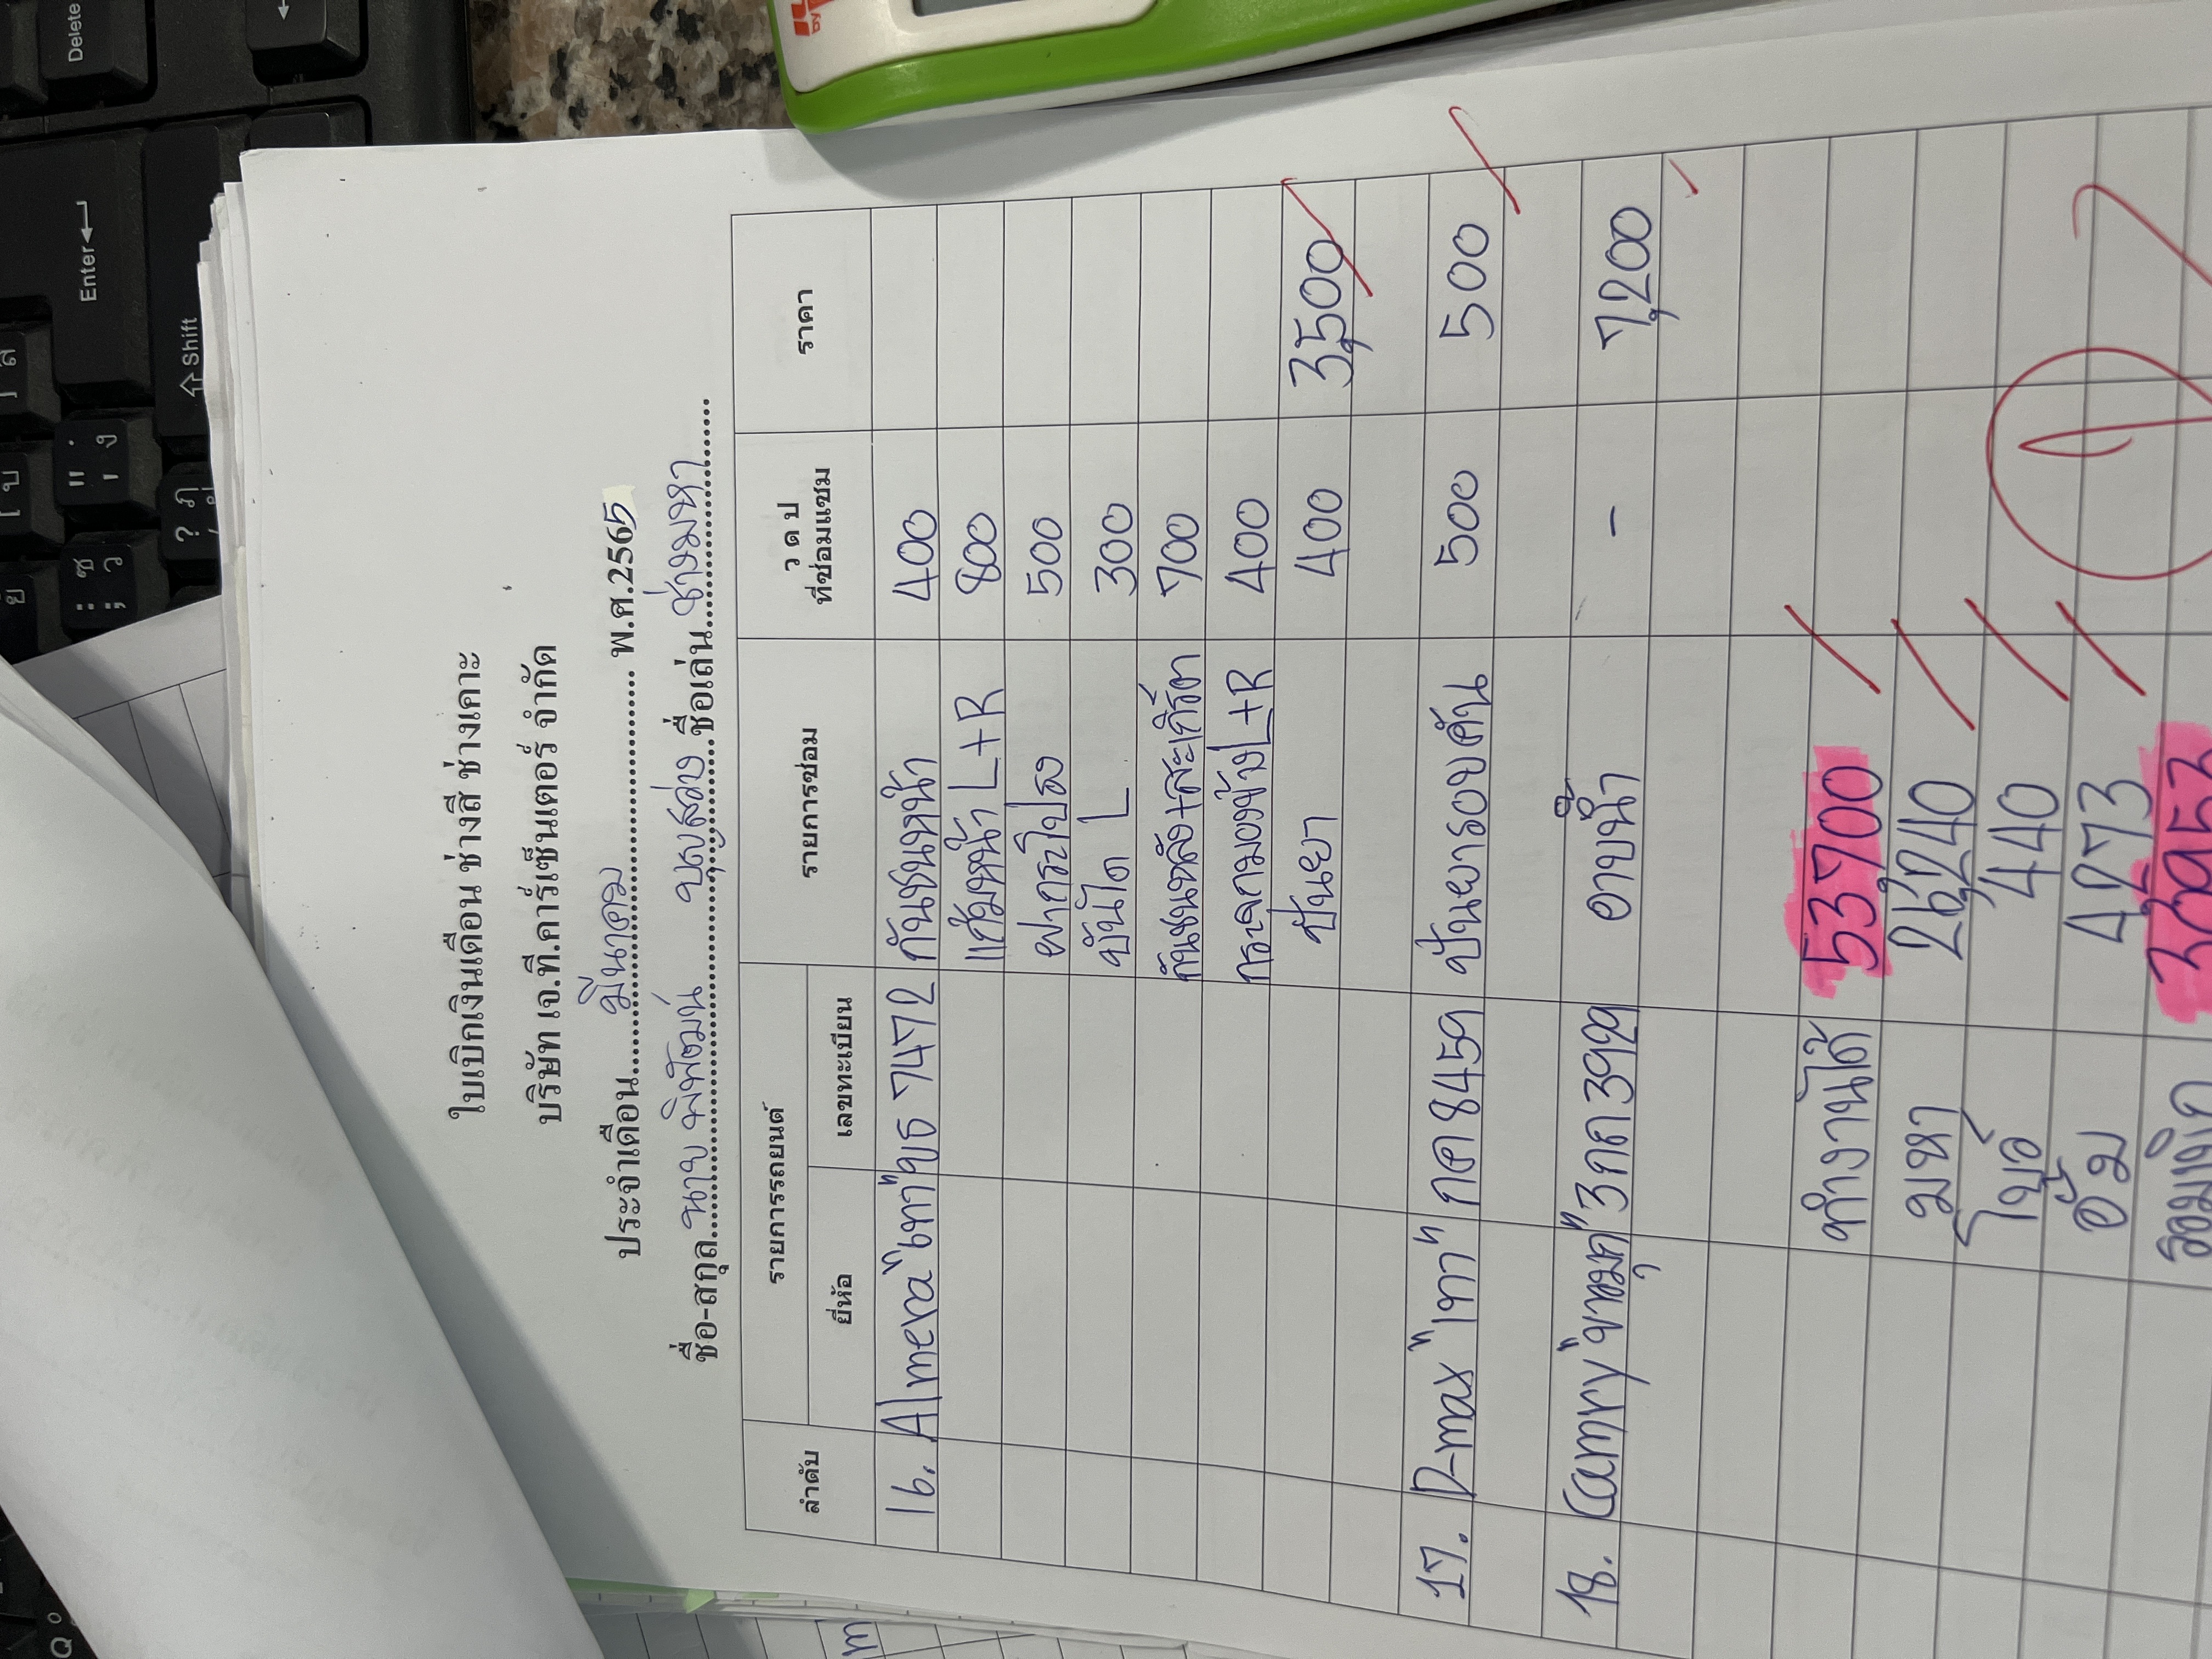 ใบเบิกเงินเดือน ช่างสี ช่างเคาะ
บริษัท เจ.ที.คาร์เซ็นเตอร์ จำกัด
ประจำเดือน มีนาคม พ.ศ.2565
ชื่อ-สกุล นาย พิพัฒน์ บุญสล่าง ชื่อเล่น ช่างมหา
ลำดับ รายการรถยนต์ รายการซ่อม ว ด ป ที่ซ่อมแซม ราคา
ยี่ห้อ เลขทะเบียน
16. Almera "เทา" ขธ 7472 กันชนหน้า 400
แก้มหน้า L+R 800
ฝากระโปรง 500
บันได L 300
กันชนหลัง+สะเกิ๊ต 700
กระจกมองข้าง L+R 400
ปั่นยา 400 3,500
17. D-max "เทา" กค 8459 ปั่นยารอบคัน 500 500
18. Camry "ขาวมุก" 3กด 3929 อาบน้ำ - 7,200
ทำงานได้ 53700
มหา 26,240
โบอ้ 440
อุ้ม 4,273
30953
Delete
Enter
Shift